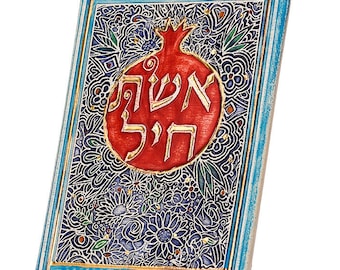 אשת
חיל